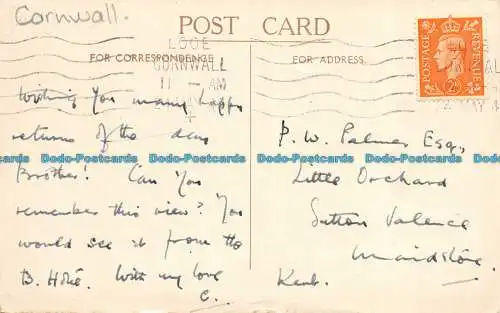 Cornwall.
POST CARD
LOOE
CORNWALL
11 - AM
FOR CORRESPONDENCE
FOR ADDRESS
POSTAGE
REVENUE
2D
Wishing you many happy
returns of the day
Brother! Can you
remember this view? You
would see it from the
B. Hotel. With my love
C.
P. W. Palmer Esq.,
Little Orchard
Sutton Valence
Maidstone.
Kent.
Dodo-Postcards Dodo-Postcards Dodo-Postcards Dodo-Postcards
Dodo-Postcards Dodo-Postcards Dodo-Postcards Dodo-Postcards